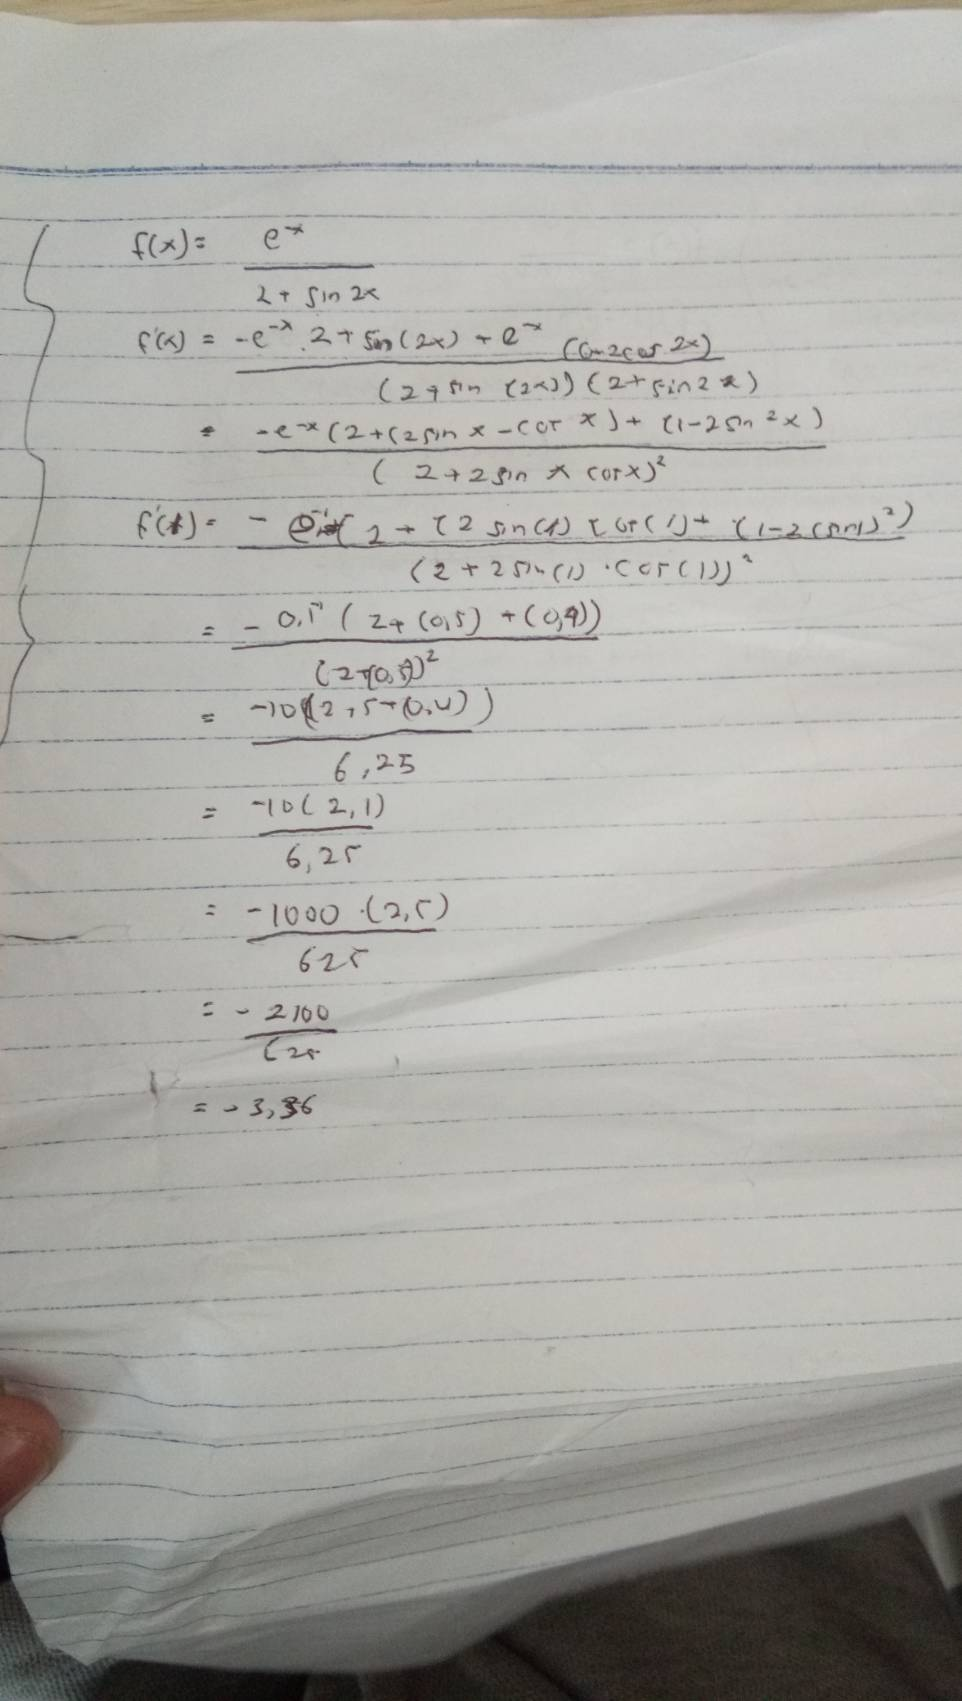 f(x) = e^-x
2 + sin 2x
f'(x) = -e^-x . 2 + sin (2x) + e^-x (0-2cos 2x)
(2 + sin (2x)) (2 + sin 2x)
= -e^-x (2 + (2 sin x - cos x) + (1-2 sin ^2 x)
( 2 + 2 sin x cos x)^2
f'(1) = - ( 2 + (2 sin (1) cos (1) + (1-2 (sin1)^2)
(2 + 2 sin (1) . cos (1))^2
= - 0,1 ( 2+ (0,5) + (0,4))
(2+0,5)^2
= -10 (2,5-(0,4))
6,25
= -10 ( 2,1)
6,25
= -1000 .(2,5)
625
= - 2100
625
= - 3,36